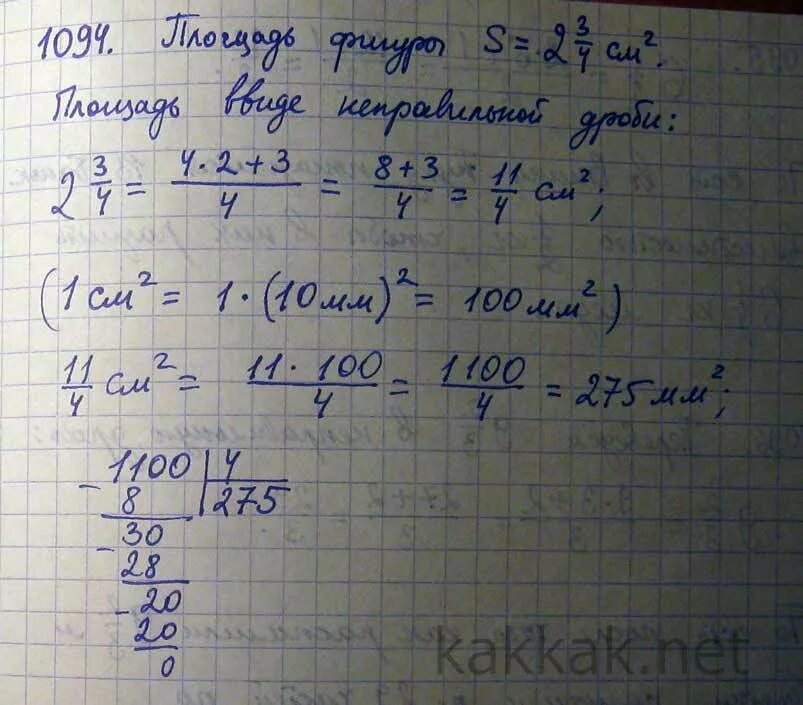 1094. Площадь фигуры S = 2 3/4 см².
Площадь ввиде неправильной дроби:
2 3/4 = (4·2+3)/4 = (8+3)/4 = 11/4 см²;
(1 см² = 1·(10мм)² = 100мм²)
11/4 см² = (11·100)/4 = 1100/4 = 275 мм²;
- 1100 | 4
8 275
- 30
28
- 20
20
0
kakkak.net